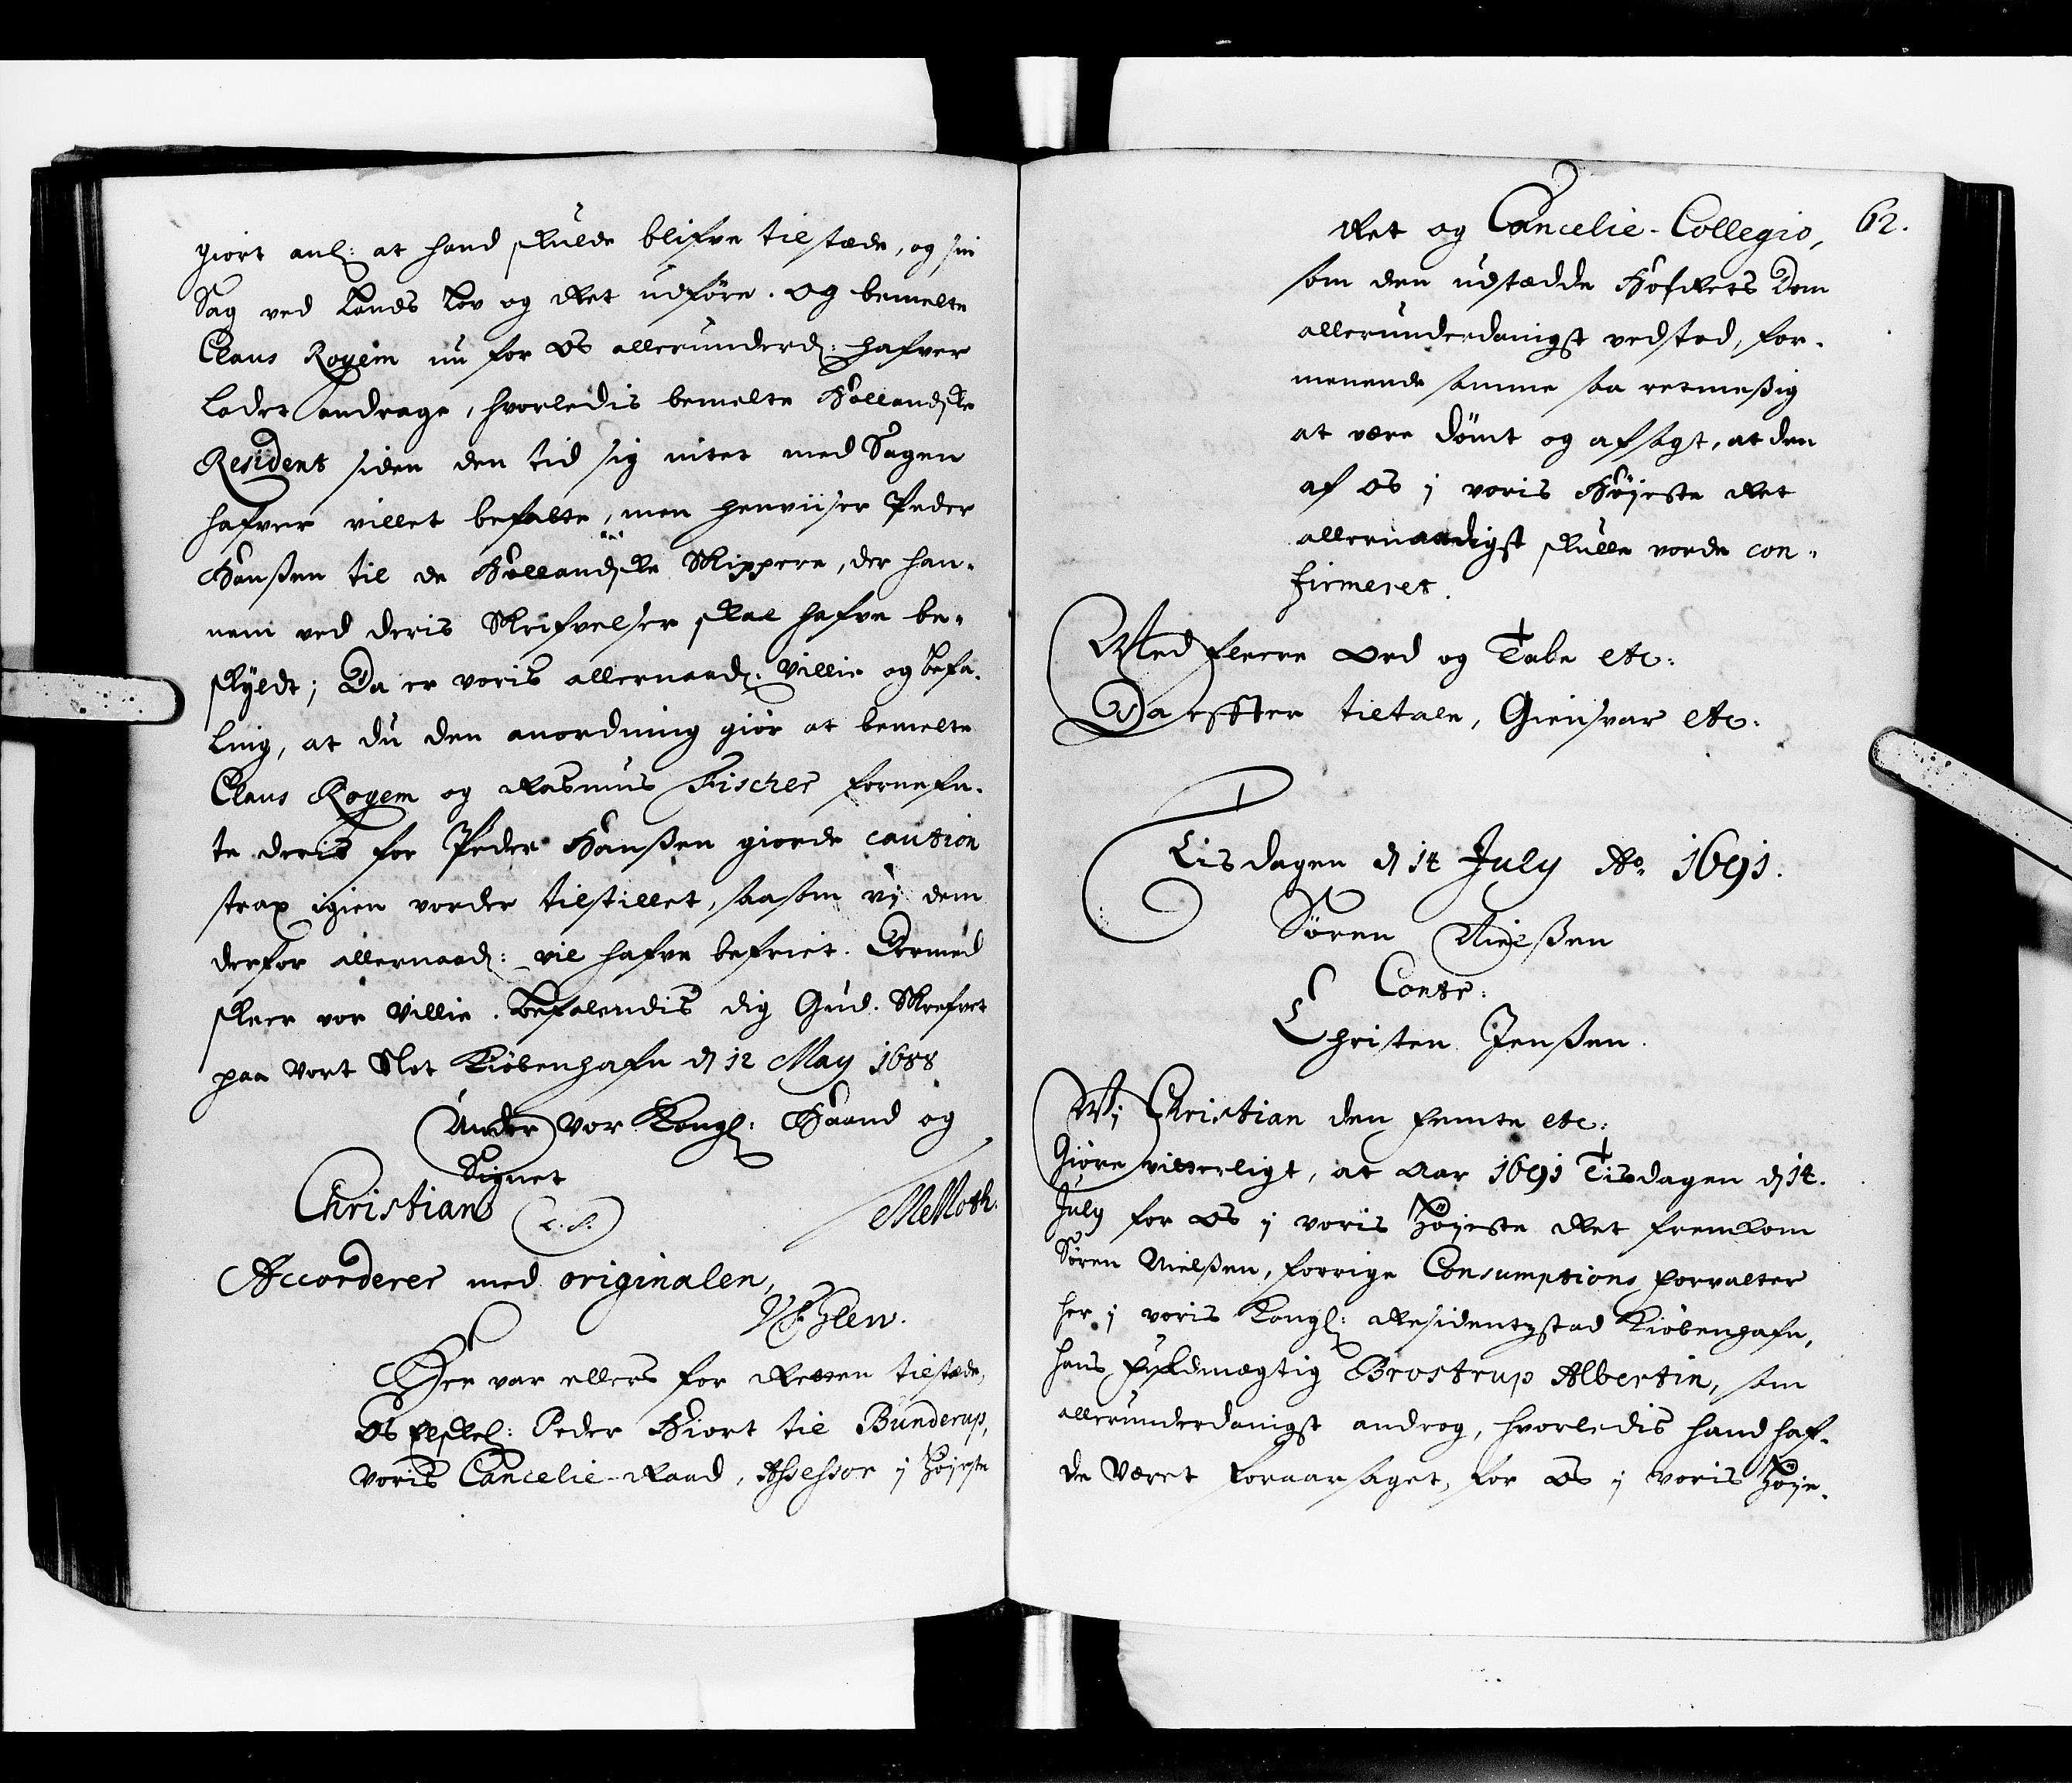 giort anl: at hand skulde blifve tilstæde, og sin
Sag ved Lands Lov og Ret udføre. Og bemelte
Claus Rogem nu for Os allerunderd: hafver
ladet andrage, hvorledis bemelte Hollandske
Resident siden den tid sig intet med Sagen
hafver villet befatte, men henviiser Peder
Hanßen til de Hollandske Skippere, der han-
nem ved deris Skrifvelser skal hafve be-
skyldt; Da er voris allernaad: Villie og befa-
ling, at du den anordning giör at bemelte
Claus Rogem og Rasmus Fischer fornefn-
te deris for Peder Hanßen giorde caution
strax igien vorder tilstillet, saasom vi dem
derfor allernaad: vil hafve befriet. Dermed
skeer vor Villie. Befalendis dig Gud. Skrefvet
paa Vort Slot Kiöbenhafn d 12 May 1688
Under Vor Kongl: Haand og
Signet
Christian (L.S.) MMoth.
Accorderer med originalen,
Der var ellers for Retten tilstæde,
Os Elskel: Peder Hiort til Bunderup,
Voris Cancelie-Raad, Assessor i Höjeste
62.
Ret og Cancelie-Collegio,
som den udstædde HofRets Dom
allerunderdanigst vedstod, for-
menende samme saa retmeßig
at være dömt og afsagt, at den
af Os i voris Höjeste Ret
allernaadigst skulle vorde con-
firmeret.
Med fleere Ord og Tale etc:
Da effter tiltale, Giensvar etc:
Tisdagen d 14 July Ao 1691.
Sören Nielßen
Contr:
Christen Jenßen.
Wi Christian den Femte etc:
Giöre vitterligt, at Aar 1691 Tisdagen d 14.
July for Os i voris Höjeste Ret fremkom
Sören Nielßen, forrige Consumptions Forvalter
her i voris Kongl: Residentzstad Kiöbenhafn,
hans Fuldmægtig Brostrup Albertin, som
allerunderdanigst androg, hvorledis hand haf-
de Været foraarsaget, for Os i voris Höje-